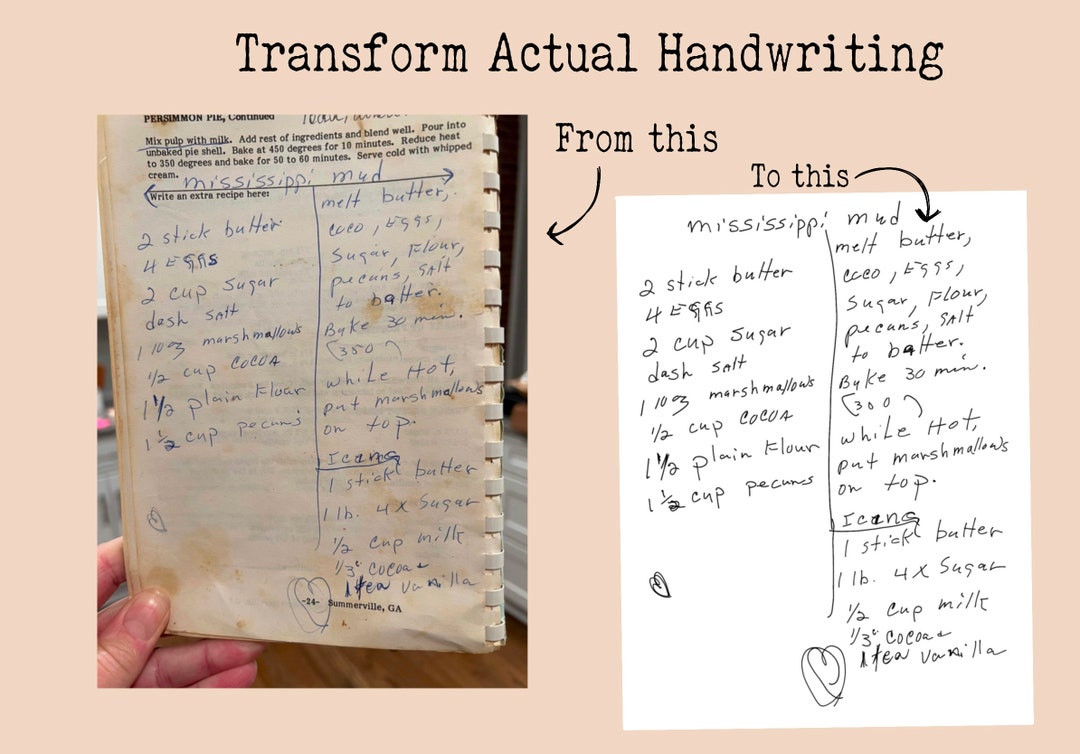 Transform Actual Handwriting
From this
To this
PERSIMMON PIE, Continued
Mix pulp with milk. Add rest of ingredients and blend well. Pour into
unbaked pie shell. Bake at 450 degrees for 10 minutes. Reduce heat
to 350 degrees and bake for 50 to 60 minutes. Serve cold with whipped
cream.
mississippi mud
Write an extra recipe here:
2 stick butter
4 EGGS
2 cup Sugar
dash SAlt
1 10oz marshmallows
1/2 cup COCOA
1 1/2 plain Flour
1 1/2 cup pecans
melt butter,
coco, EGGS,
Sugar, Flour,
pecans, SAlt
to batter.
Bake 30 min.
(350)
while Hot,
put marshmallows
on top.
Icang
1 stick butter
1 lb. 4x Sugar
1/2 cup milk
1/3 c cocoa
1 tea vanilla
-24- Summerville, GA
mississippi mud
2 stick butter
4 EGGS
2 cup Sugar
dash SAlt
1 10oz marshmallows
1/2 cup COCOA
1 1/2 plain Flour
1 1/2 cup pecans
melt butter,
coco, EGGS,
Sugar, Flour,
pecans, SAlt
to batter.
Bake 30 min.
(300)
while Hot,
put marshmallows
on top.
Icang
1 stick butter
1 lb. 4x Sugar
1/2 cup milk
1/3 c cocoa
1 tea vanilla